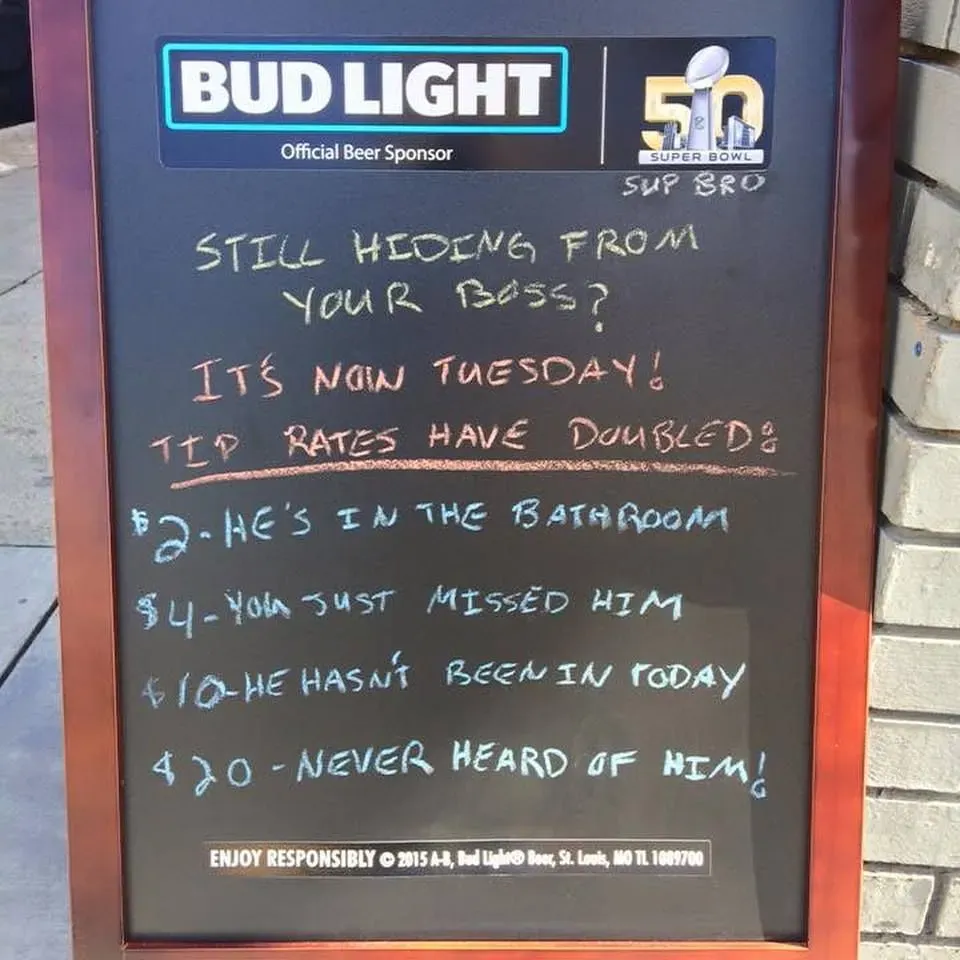 BUD LIGHT
Official Beer Sponsor
50
SUPER BOWL
SUP BRO
STILL HIDING FROM
YOUR BOSS?
IT'S NOW TUESDAY!
TIP RATES HAVE DOUBLED!
$2-HE'S IN THE BATHROOM
$4-YOU JUST MISSED HIM
$10-HE HASN'T BEEN IN TODAY
$20-NEVER HEARD OF HIM!
ENJOY RESPONSIBLY © 2015 A-B, Bud Light® Beer, St. Louis, MO TL 1089700